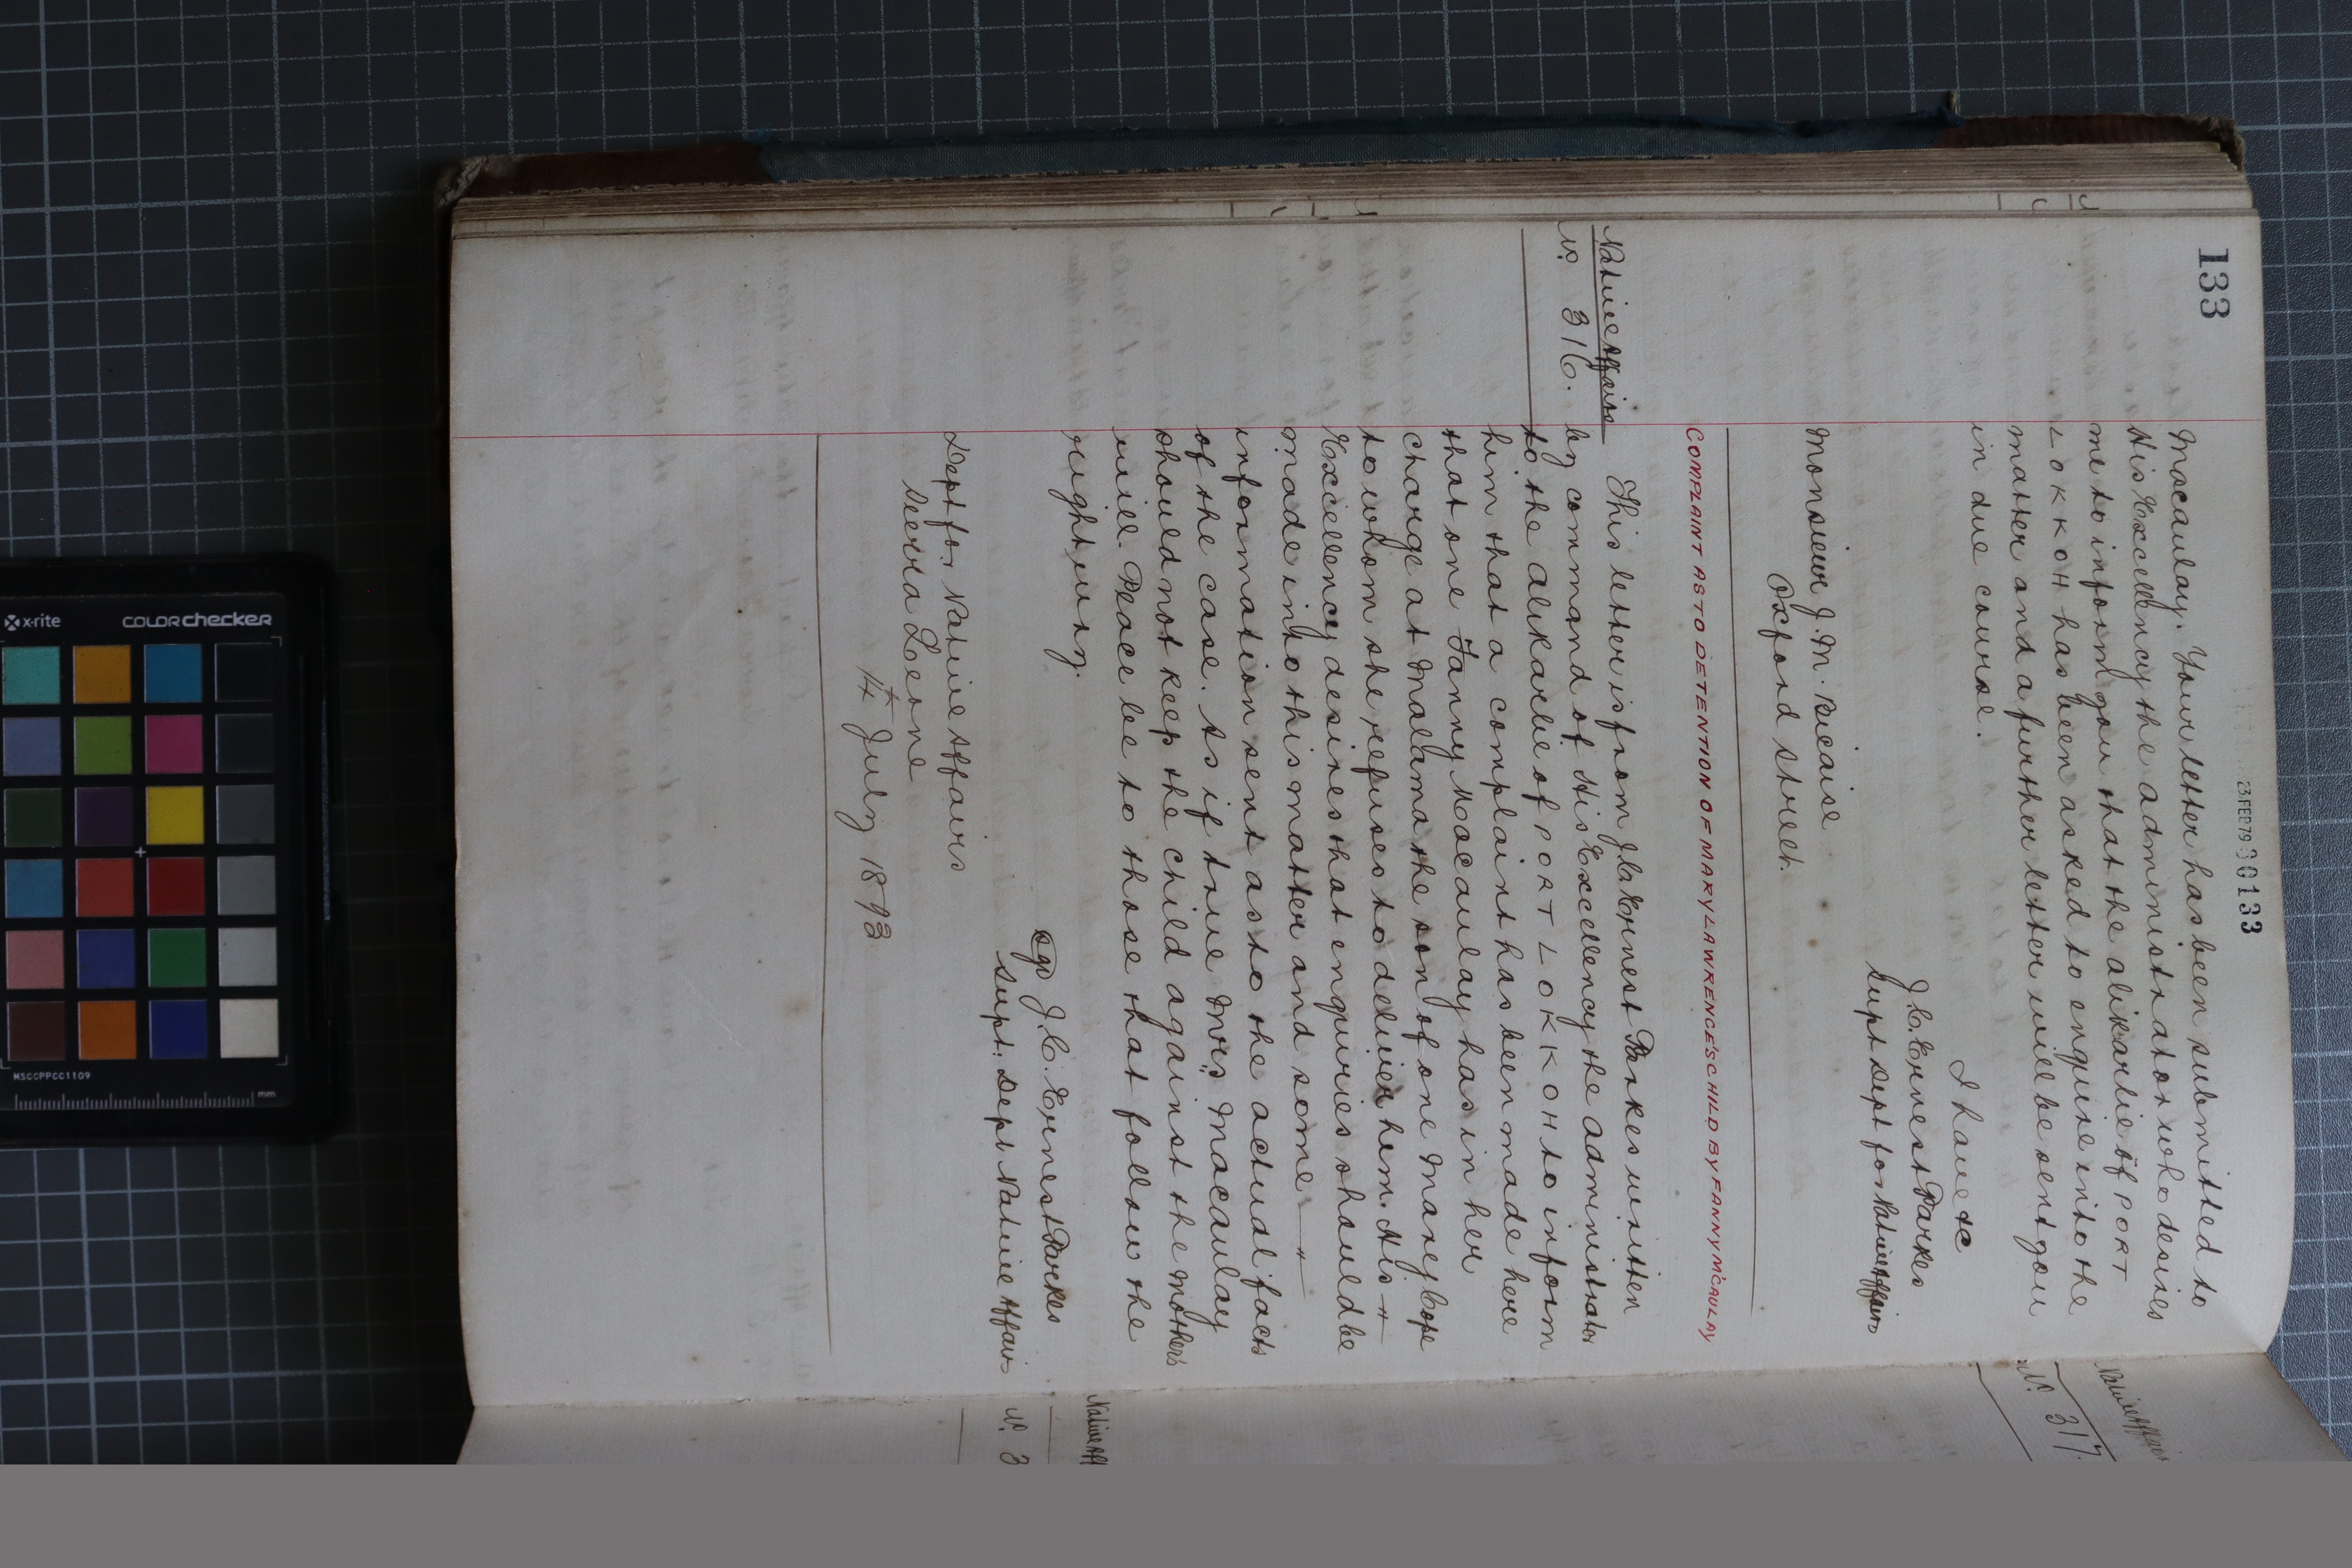 133
23 FEB 79 00133
Macaulay. Your letter has been submitted to
His Excellency the administrator who desires
me to inform you that the alikarlie of PORT
LOKKOH has been asked to enquire into the
matter and a further letter will be sent you
in due course.
I have &c
J.C. Ernest Parkes
Supt Dept for Native Affairs
Monsieur J. M. Bicaise
Oxford Street.
COMPLAINT AS TO DETENTION OF MARY LAWRENCE'S CHILD BY FANNY M'CAULAY
Native Affairs
No. 316.
This letter is from J.C. Ernest Parkes written
by command of His Excellency the administrator
to the alikarlie of PORT LOKKOH to inform
him that a complaint has been made here
that one Fanny Macaulay has in her
charge at Malama the son of one Mary Cope
to whom she refuses to deliver him. His
Excellency desires that enquiries should be
made into this matter and some
information sent as to the actual facts
of the case. As if true Mrs. Macaulay
should not keep the child against the mother's
will. Peace be to those that follow the
right way.
Sgd J.C. Ernest Parkes
Supt. Dept Native Affairs
Dept for Native Affairs
Sierra Leone
14 July 1893
Native Affairs
No. 317.
Native Aff
No. 3
x-rite
COLORchecker
MSCCPPCC1109
mm